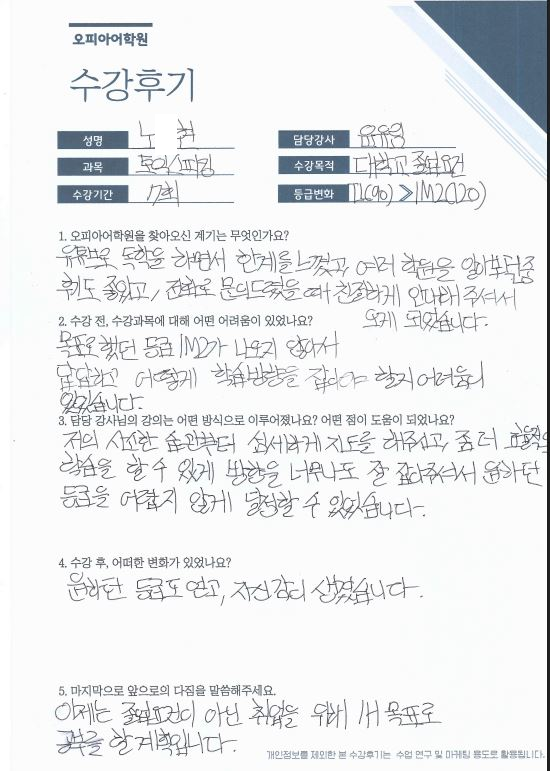 오피아어학원
수강후기
성명 노 현
담당강사 유유영
과목 토익스피킹
수강목적 대학교 졸업요건
수강기간 17회
등급변화 IL(90) ≫ IM2(120)
1. 오피아어학원을 찾아오신 계기는 무엇인가요?
유튜브로 독학을 하면서 한계를 느꼈고, 여러 학원을 알아보던중
후기도 좋았고, 전화로 문의드렸을 때 친절하게 안내해 주셔서
오게 되었습니다.
2. 수강 전, 수강과목에 대해 어떤 어려움이 있었나요?
목표로 했던 등급 IM2가 나오지 않아서
답답하고 어떻게 학습방향을 잡아야 할지 어려움이
있었습니다.
3. 담당 강사님의 강의는 어떤 방식으로 이루어졌나요? 어떤 점이 도움이 되었나요?
저의 사소한 습관부터 섬세하게 지도를 해주시고, 좀 더 효율적
학습을 할 수 있게 방향을 너무나도 잘 잡아주셔서 원하던
등급을 어렵지 않게 달성할 수 있었습니다.
4. 수강 후, 어떠한 변화가 있었나요?
원하던 등급도 얻고, 자신감이 생겼습니다.
5. 마지막으로 앞으로의 다짐을 말씀해주세요.
이제는 졸업요건이 아닌 취업을 위해 IH 목표로
공부를 할 계획입니다.
개인정보를 제외한 본 수강후기는 수업 연구 및 마케팅 용도로 활용됩니다.